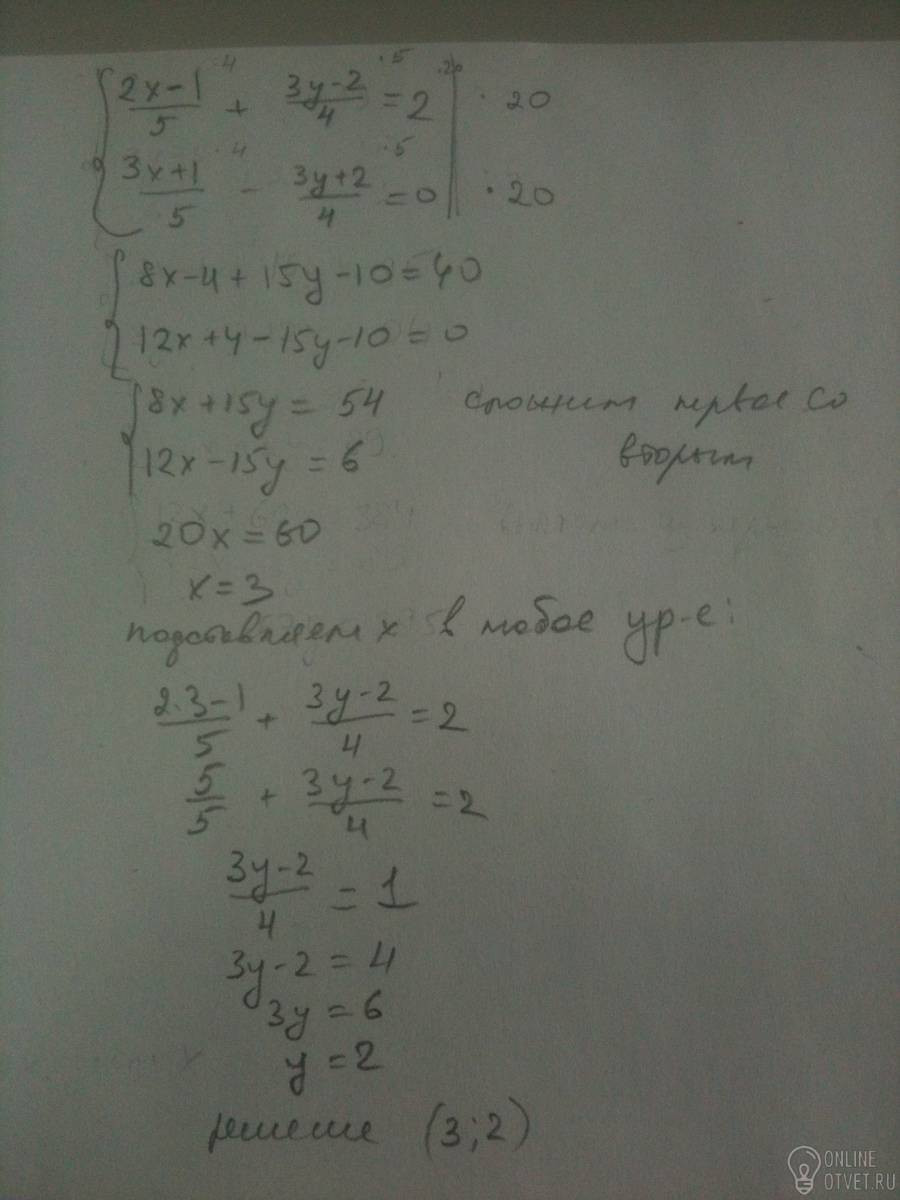 2x-1/5 ·4 + 3y-2/4 ·5 = 2 ·20 | · 20
3x+1/5 ·4 - 3y+2/4 ·5 = 0 | · 20
8x-4+15y-10=40
12x+4-15y-10=0
8x+15y=54 сложим первое со
12x-15y=6 вторым
20x=60
x=3
подставляем x в любое ур-е:
2·3-1/5 + 3y-2/4 = 2
5/5 + 3y-2/4 = 2
3y-2/4 = 1
3y-2=4
3y=6
y=2
решение (3;2)
ONLINE
OTVET.RU